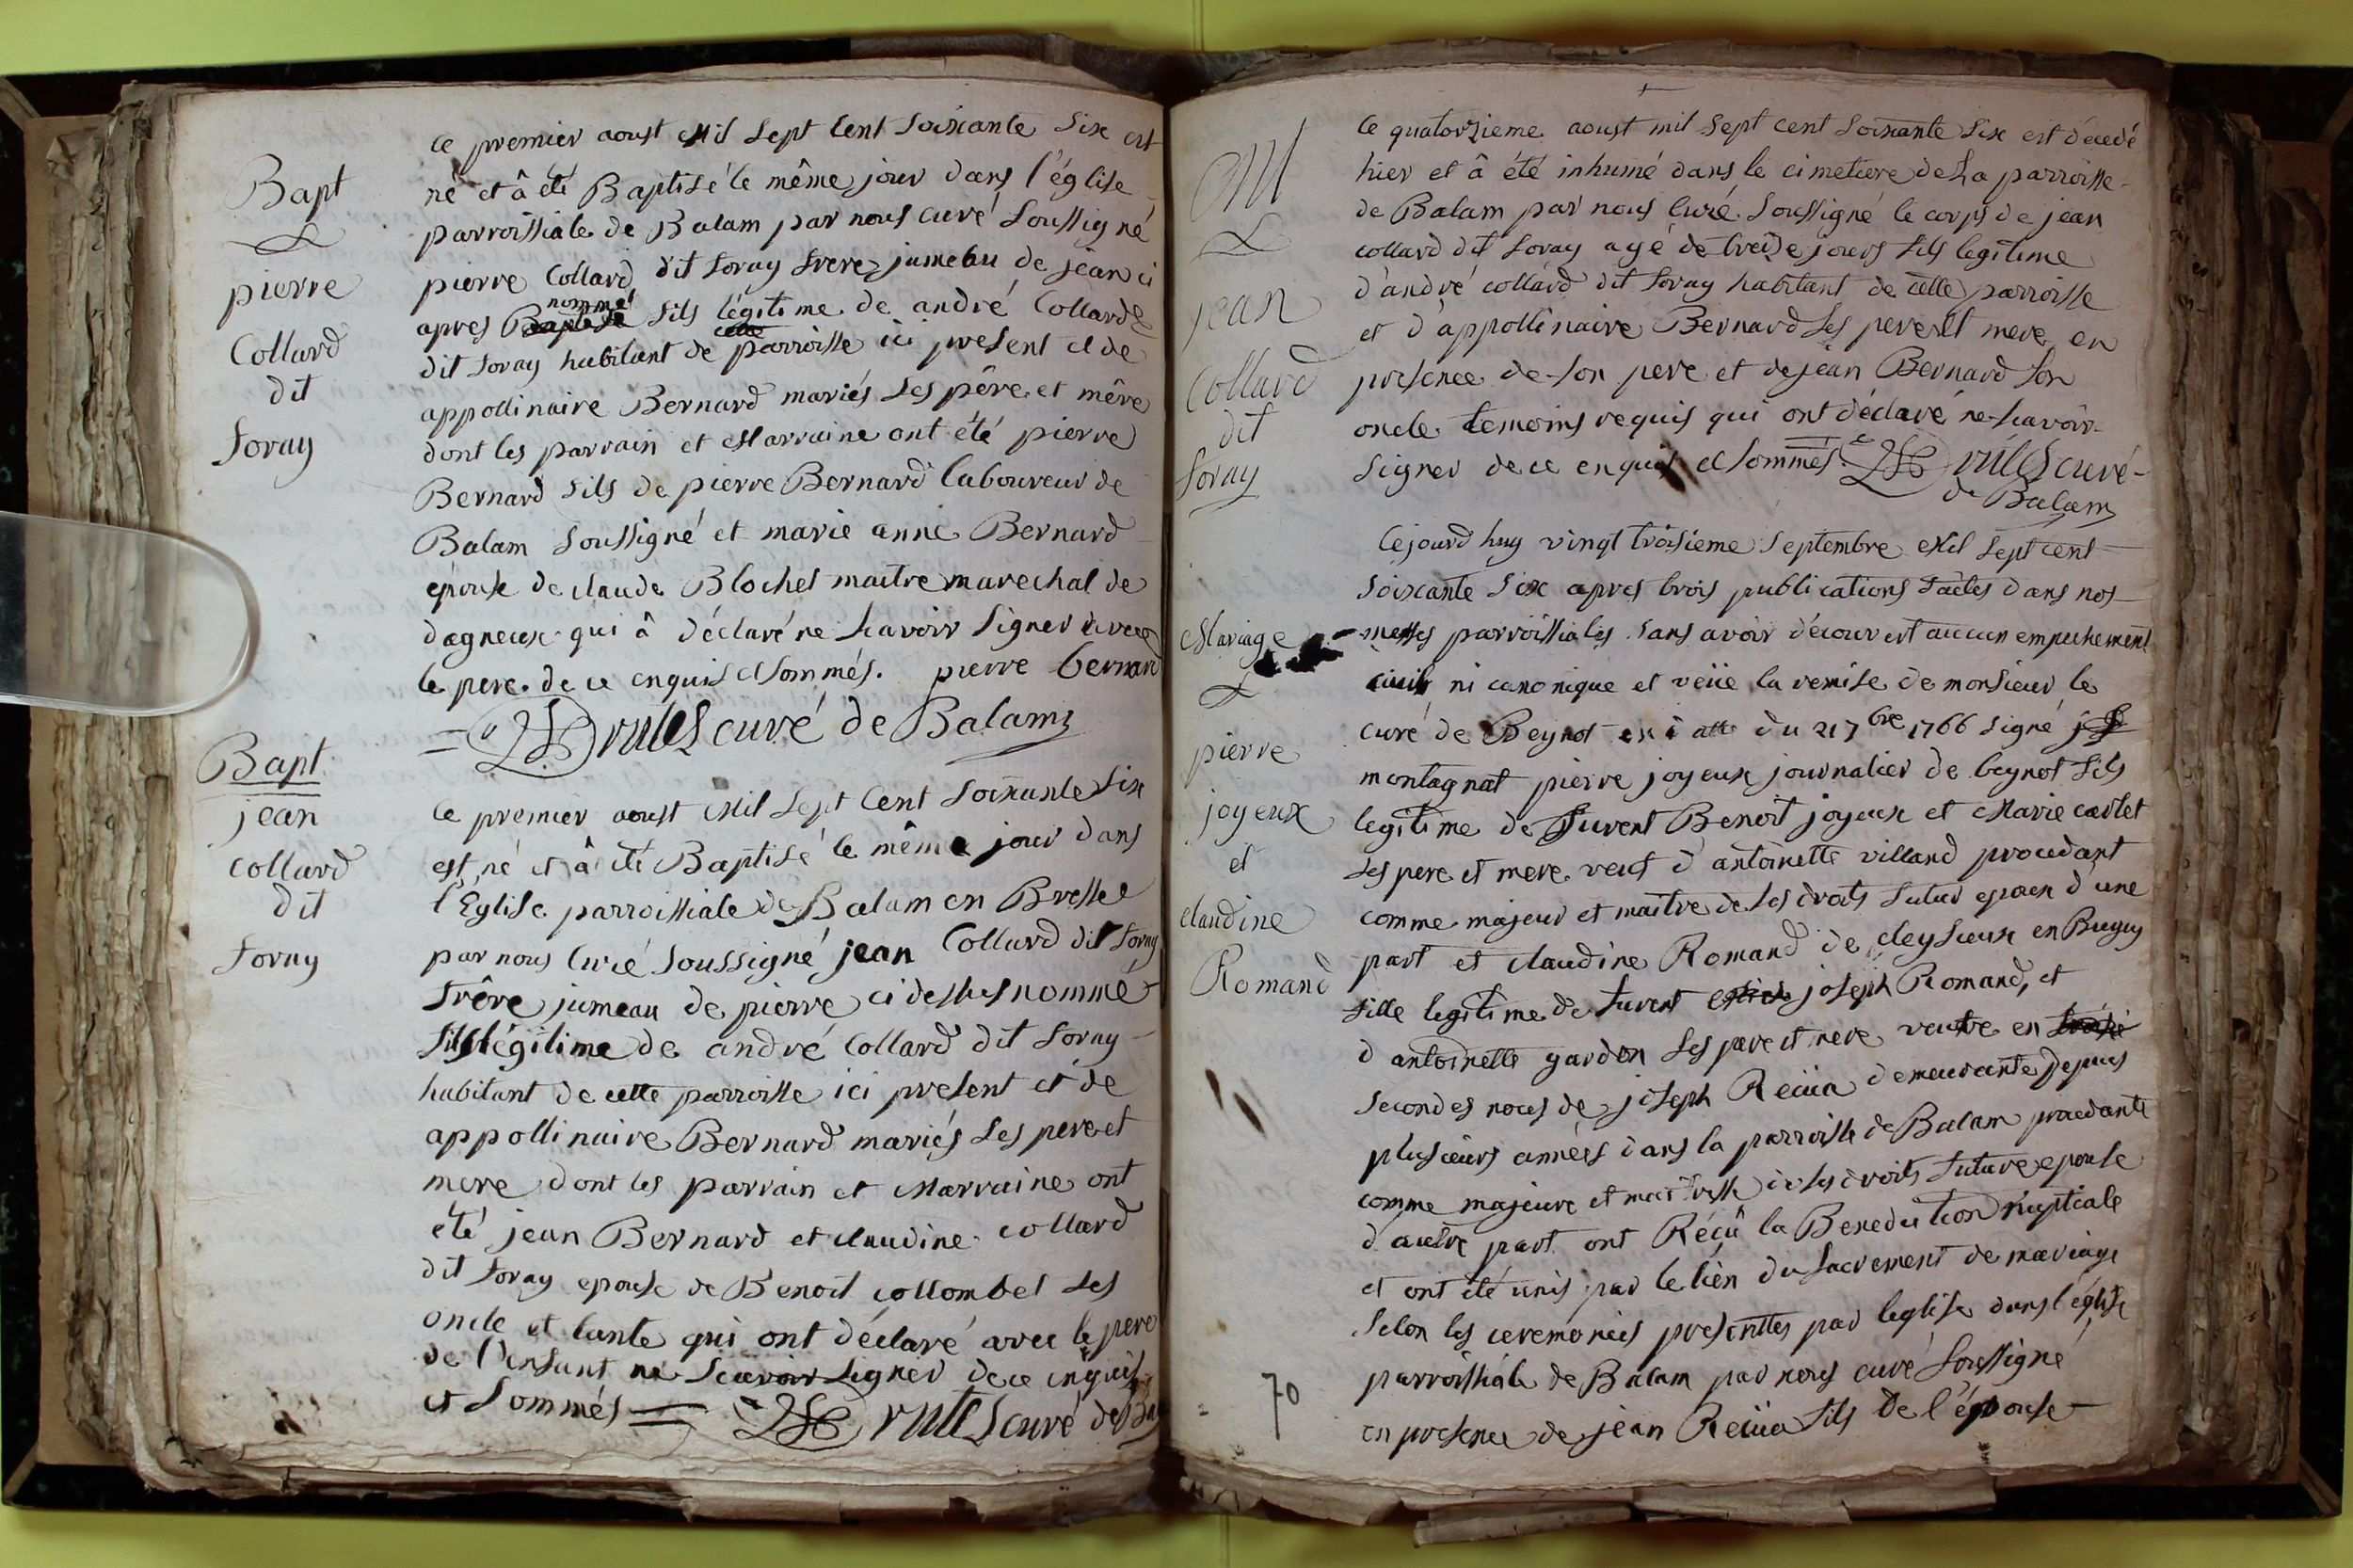 Bapt
pierre
Collard
dit
foray
Le premier aoust Mil Sept Cent Soixante Six est
né et â été Baptisé le même jour dans l'église
parroissiale de Balam par nous curé Soussigné
pierre Collard dit foray frere jumeau de jean ci
apres nommé fils légitime de andré Collard
dit foray habitant de cette parroisse ici present et de
appollinaire Bernard mariés Ses pêre et mêre
dont les parrain et Marraine ont été pierre
Bernard fils de pierre Bernard laboureur de
Balam Soussigné et marie anne Bernard
épouse de claude Blochet maitre marechal de
dagneux qui â déclaré ne Scavoir Signer avec
le pere de ce enquis et Sommés. pierre bernard
curé de Balam
Bapt
jean
collard
dit
foray
Le premier aoust Mil Sept Cent Soixante Six
est né et â été Baptisé le même jour dans
l'Eglise parroissiale de Balam en Bresse
par nous Curé Soussigné jean Collard dit foray
frêre jumeau de pierre ci dessus nommé
fils légitime de andré Collard dit foray
habitant de cette parroisse ici present et de
appollinaire Bernard mariés Ses pere et
mere dont les parrain et Marraine ont
été jean Bernard et claudine collard
dit foray epouse de Benoit collombet Ses
oncle et tante qui ont déclaré avec le pere
de l'enfant ne Scavoir Signer de ce enquis
et Sommés curé de Ba
M
jean
Collard
dit
foray
Le quatorzieme aoust mil Sept cent Soixante Six est décedé
hier et â été inhumé dans le cimetiere de La parroisse
de Balam par nous Curé Soussigné le corps de jean
collard dit foray agé de treize jours fils legitime
d'andré collard dit foray habitant de cette parroisse
et d'appollinaire Bernard Ses pere et mere en
presence de Son pere et de jean Bernard Son
oncle temoins requis qui ont déclaré ne Scavoir
Signer de ce enquis et Sommés. curé
de Balam
Mariage
pierre
joyeux
et
claudine
Romand
Cejourd huy vingt troisieme Septembre Mil Sept cent
Soixante Six apres trois publications faites dans nos
messes parroissiales Sans avoir découvert aucun empechement
civil ni canonique et veüe la remise de monsieur le
curé de Beynot en datte du 21 7bre 1766 Signé
montagnat pierre joyeux journalier de beynot fils
legitime de furent Benoit joyeux et Marie carlet
Ses pere et mere veuf d'antoinette villand procedant
comme majeur et maitre de Ses droits futur epoux d'une
part et claudine Romand de cleysieux en Bugey
fille legitime de furent joseph Romand, et
d'antoinette gardon Ses pere et mere veufve en
Secondes noces de joseph Reüia demeurante depuis
plusieurs années dans la parroisse de Balam procedante
comme majeure et maitresse de Ses droits future epouse
d'autre part ont Réçû la Benediction nuptiale
et ont été unis par le lien du Sacrement de mariage
Selon les ceremonies presentes par l'eglise dans l'église
parroissiale de Balam par nous curé Soussigné
en presence de jean Reüia fils de l'épouse
70